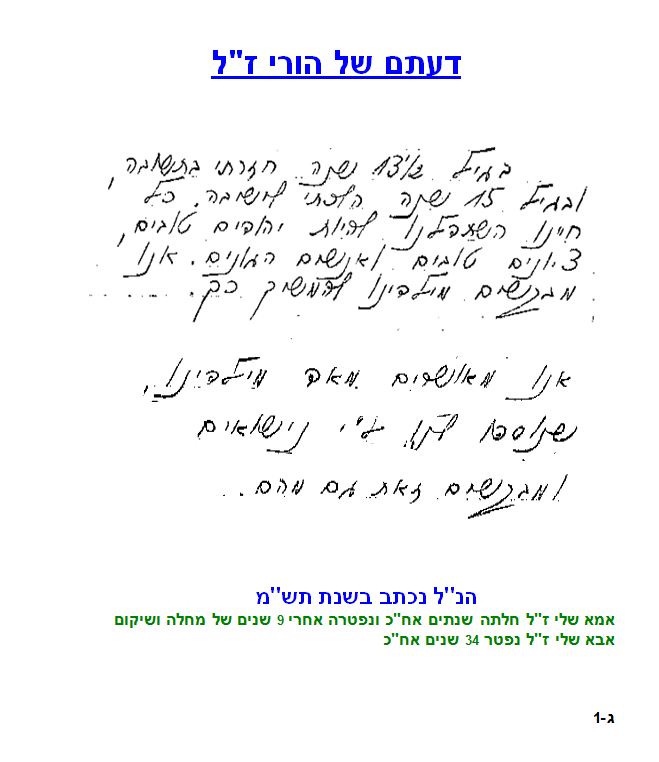 דעתם של הורי ז"ל
בגיל 13 שנה חזרתי בתשובה,
ובגיל 15 שנה הלכתי לישיבה. כל
חיינו השתדלנו להיות יהודים טובים,
ציונים טובים ואנשים הגונים. אנו
מבקשים מילדינו להמשיך כך.
אנו מאושרים מאד מילדינו,
שנוספו לנו ע"י נישואים
ומבקשים זאת גם מהם.
הנ"ל נכתב בשנת תש"מ
אמא שלי ז"ל חלתה שנתים אח"כ ונפטרה אחרי 9 שנים של מחלה ושיקום
אבא שלי ז"ל נפטר 34 שנים אח"כ
ג-1